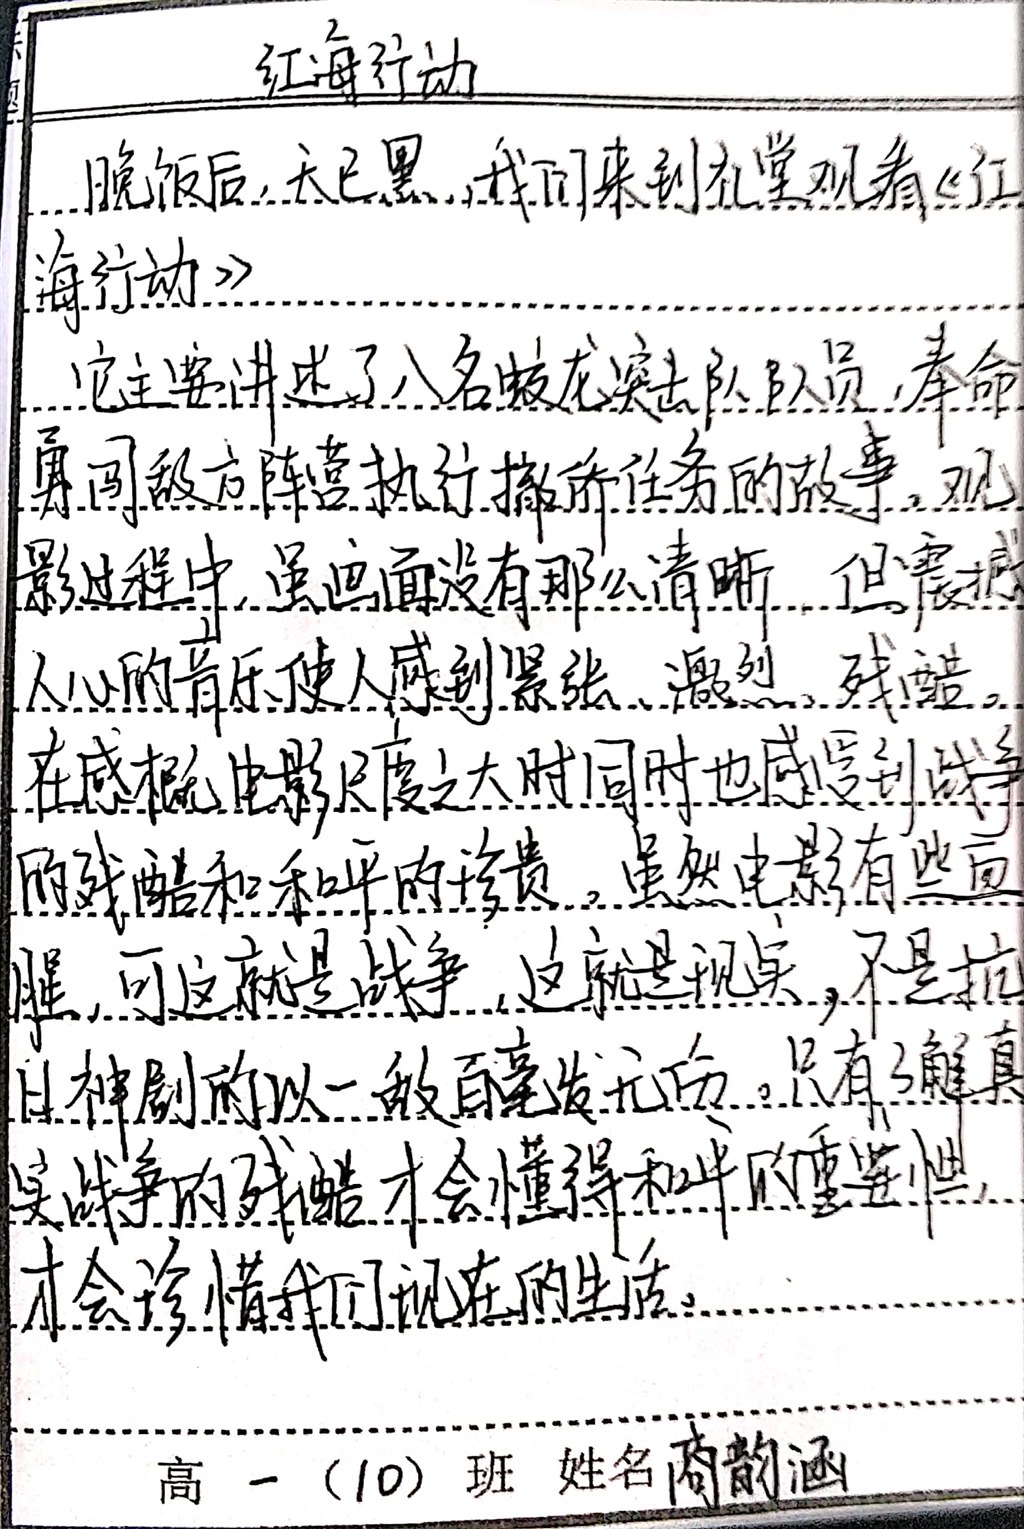 红海行动
晚饭后,天已黑,我们来到礼堂观看《红
海行动》
它主要讲述了八名蛟龙突击队队员,奉命
勇闯敌方阵营执行撤侨任务的故事。观
影过程中,虽画面没有那么清晰,但震撼
人心的音乐使人感到紧张、激烈、残酷。
在感概电影尺度之大时同时也感受到战争
的残酷和和平的珍贵。虽然电影有些血
腥,可这就是战争,这就是现实,不是抗
日神剧的以一敌百毫发无伤。只有了解真
实战争的残酷才会懂得和平的重要性,
才会珍惜我们现在的生活。
高一(10)班 姓名商韵涵